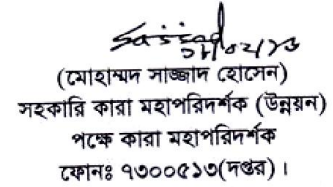 Sajjad
০৮/০২/২৩
(মোহাম্মদ সাজ্জাদ হোসেন)
সহকারি কারা মহাপরিদর্শক (উন্নয়ন)
পক্ষে কারা মহাপরিদর্শক
ফোনঃ ৭৩০০৫১৩(দপ্তর)।